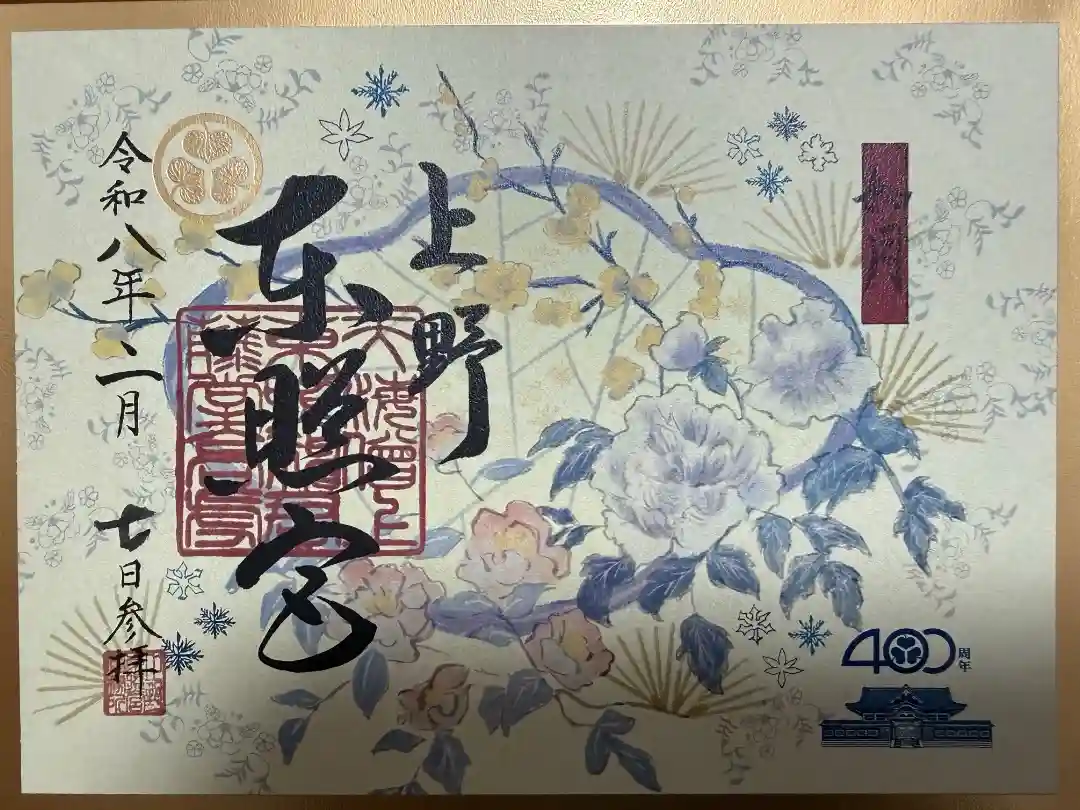 上野
東照宮
令和八年二月
七日参拝
400周年